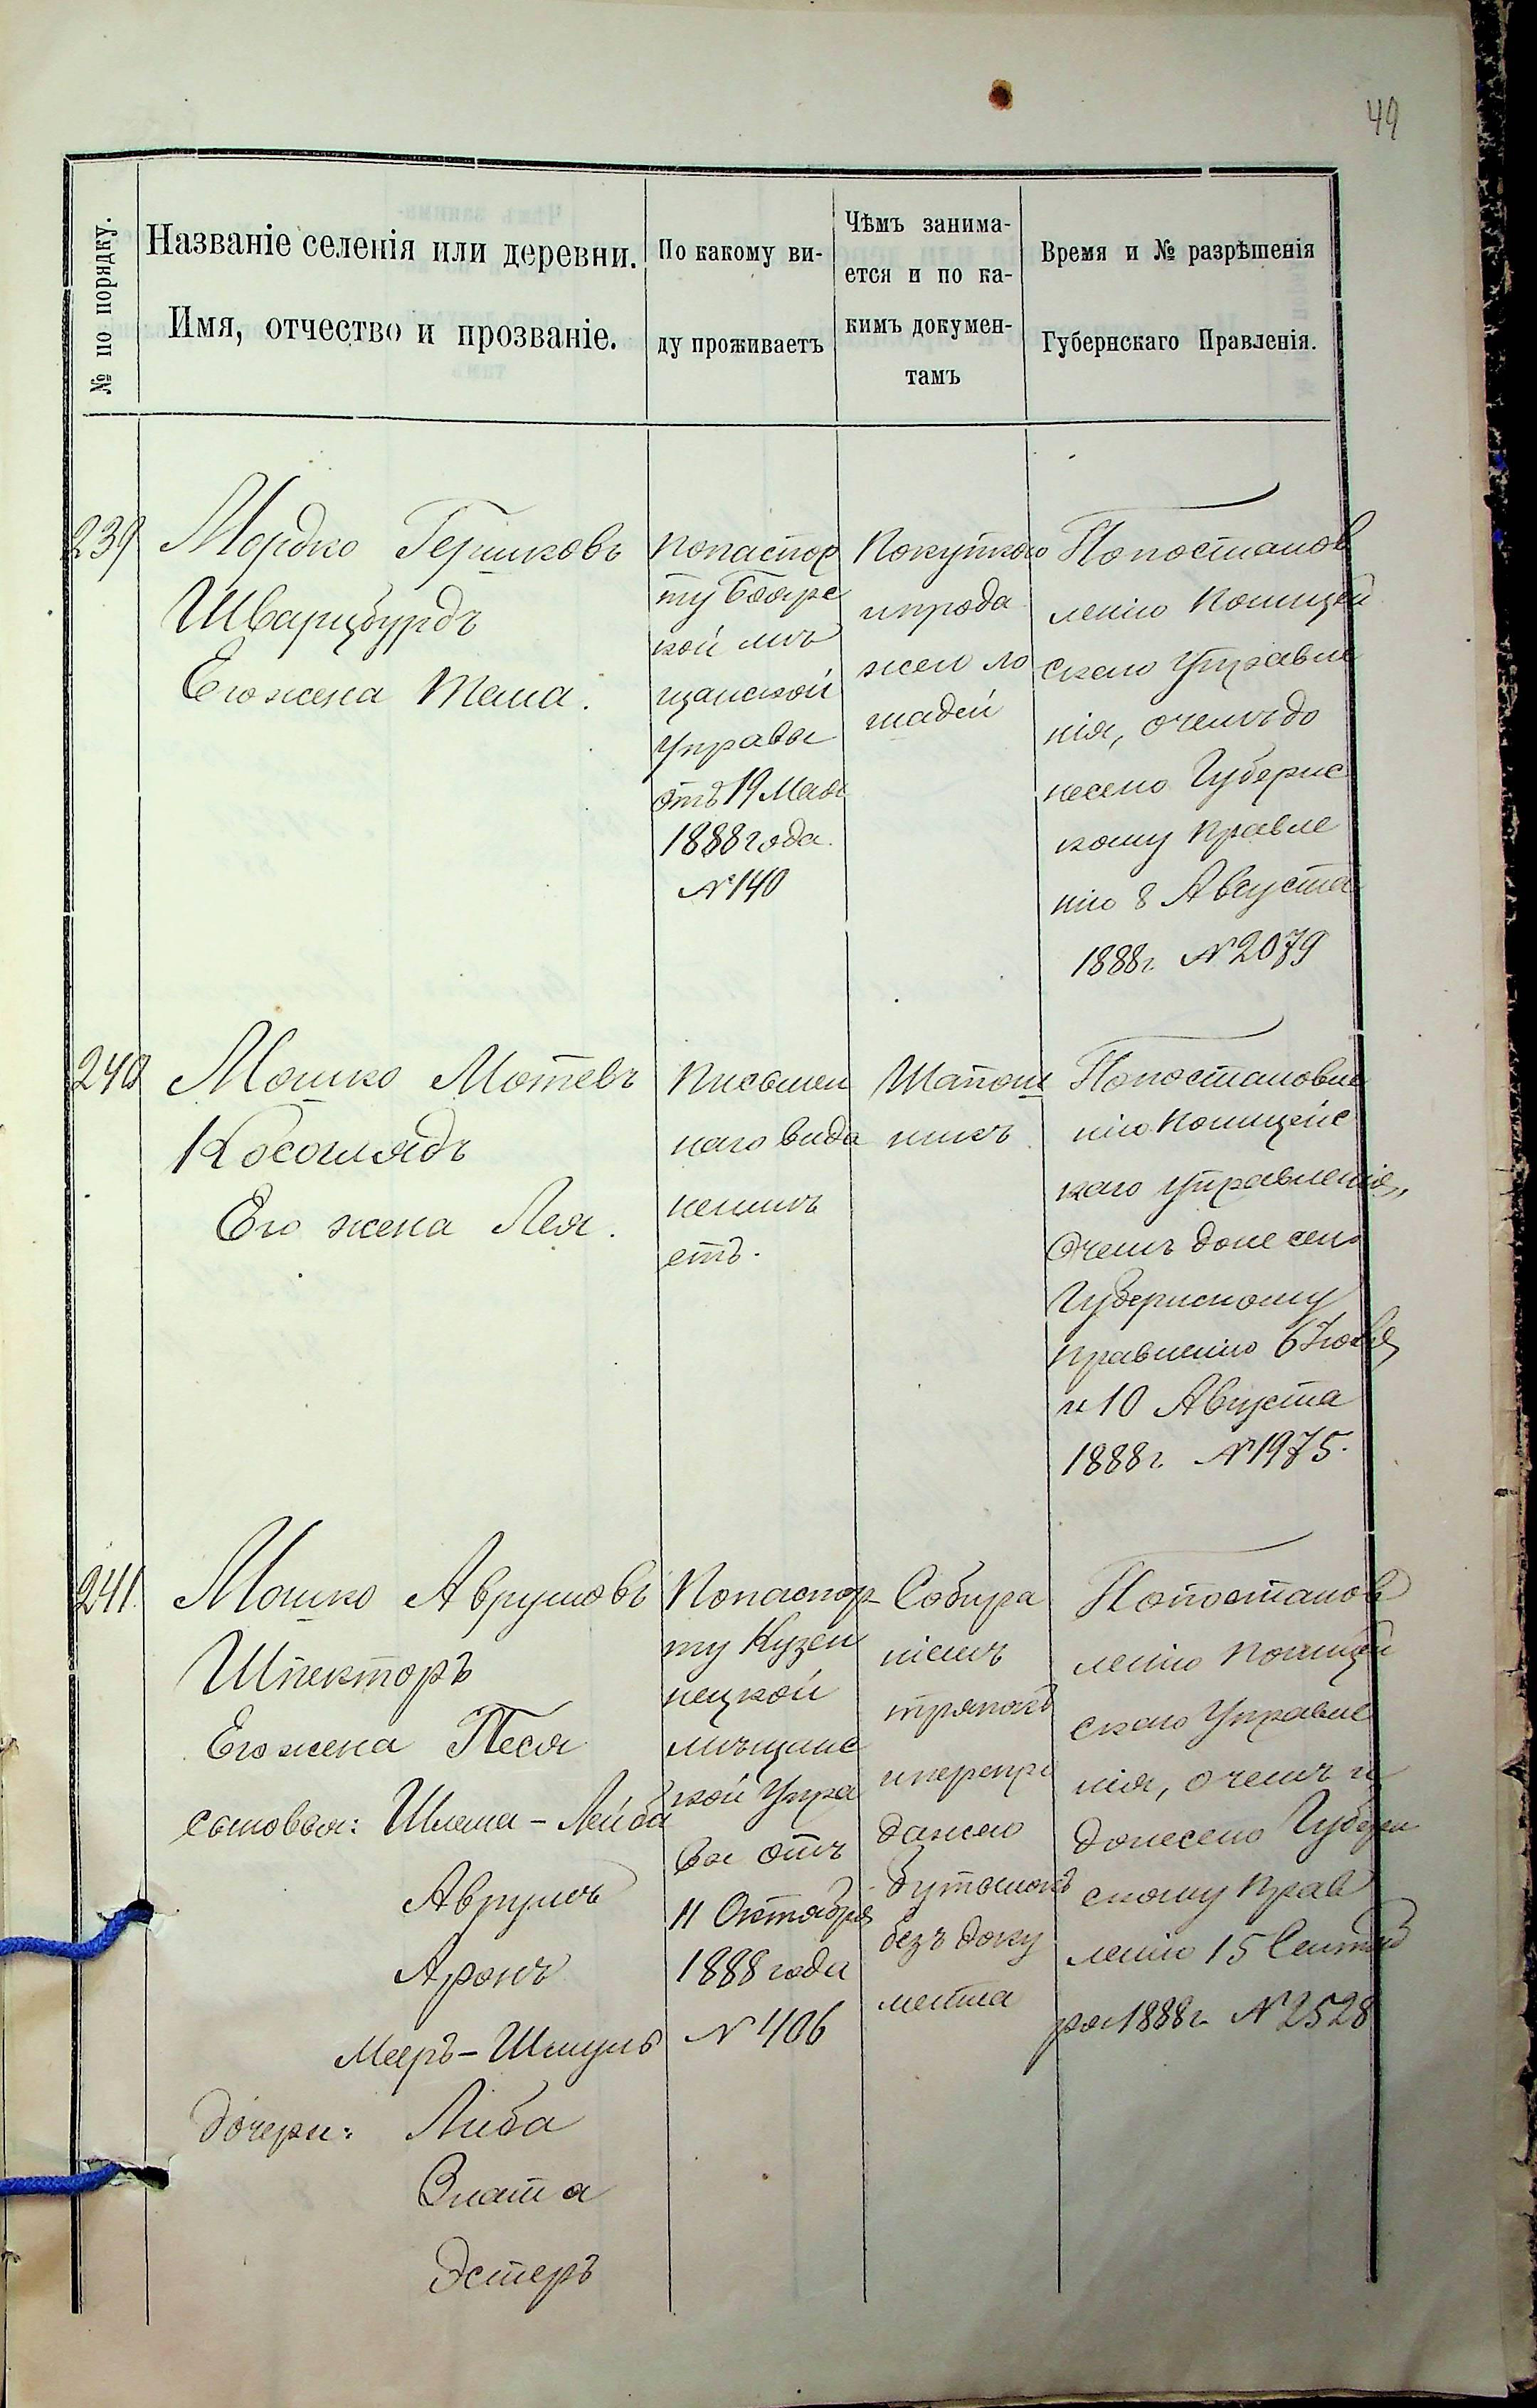 49
№ по порядку.
Названіе селенія или деревни.
Имя, отчество и прозваніе.
По какому ви-
ду проживаетъ
Чѣмъ занима-
ется и по ка-
кимъ докумен-
тамъ
Время и № разрѣшенія
Губернскаго Правленія.
239
Мордко Гершковъ
Шварцбурдъ
Его жена
По паспор
ту
кой мѣ
щанской
Управы
отъ 19 Мая
1888 года
№ 140
Покупкою
и прода
жею ло
шадей
По постанов
ленію Полицей
скаго Управле
нія, о чемъ до
несено Губернс
кому Правле
нію 8 Августа
1888 г. № 2079
240
Мошко Мотевъ
Косоглядъ
Его жена Лея.
Письмен
наго вида
не имѣ
етъ.
Шапош
никъ
По постановле
нію Полицейс
каго Управленія,
о чемъ донесено
Губернскому
Правленію 6 Іюля
и 10 Августа
1888 г. № 1975.
241.
Мошко Аврумовъ
Шпекторъ
Его жена Песя
сыновья: Шлема - Лейба
Аврумъ
Аронъ
Мееръ - Шмуль
дочери: Либа
Злата
Эстеръ
По паспор-
ту Кузен
нецкой
мѣщанс
кой Упра
вы отъ
11 Октября
1888 года
№ 406
Собира
ніемъ
тряпокъ
и перепро
дажею
бутылокъ
безъ доку
мента
По постанов
ленію Полицей
скаго Управле
нія, о чемъ и
донесено Губерн
скому Прав
ленію 15 Сентяб
ря 1888 г. № 2528